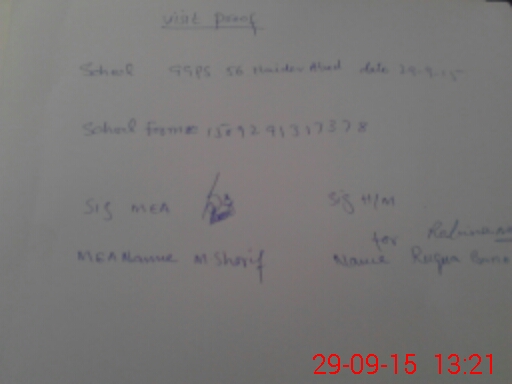 visit proof
School GGPS 56 Haider Abad date 29-9-15
School Form no
Sig MEA Sig H/M
for Rabina
MEA Name M Sharif Name Ruqya Bano
29-09-15 13:21